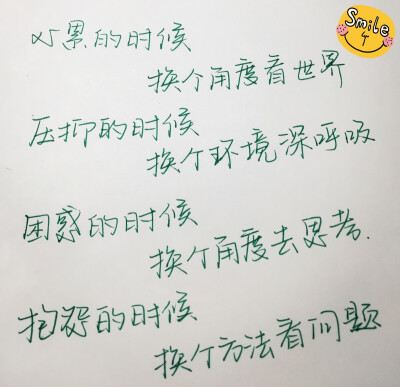 Smile
心累的时候
换个角度看世界
压抑的时候
换个环境深呼吸
困惑的时候
换个角度去思考.
抱怨的时候
换个方法看问题